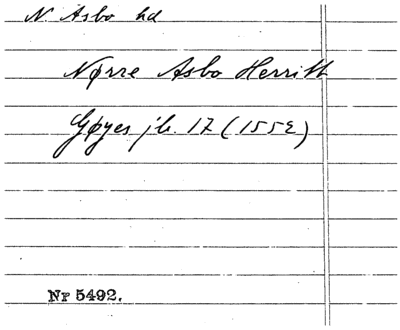 N. Asbo hd
Nørre Asbo Herrith
Gøyes jb. 17 (1552)
Nr 5492.